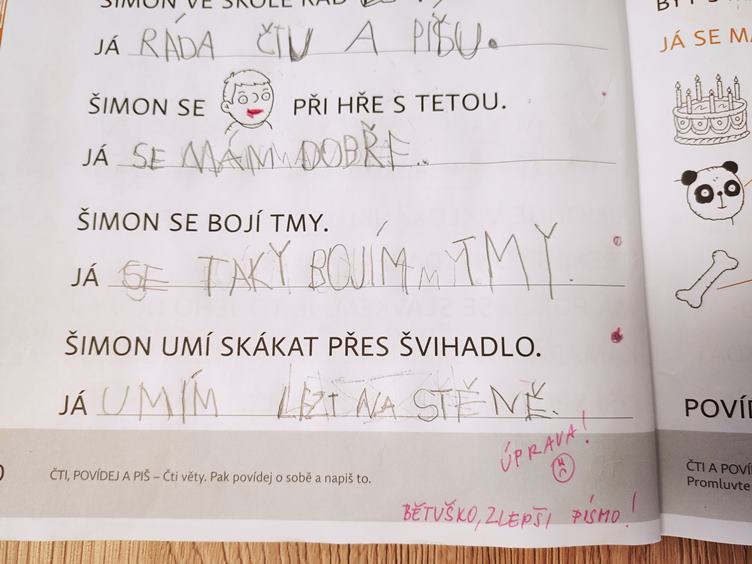 ŠIMON VE ŠKOLE RÁD
JÁ RÁDA ČTU A PÍŠU.
ŠIMON SE PŘI HŘE S TETOU.
JÁ SE MAM DOBŘE..
ŠIMON SE BOJÍ TMY.
JÁ SE TAKY BOJÍM TMY.
ŠIMON UMÍ SKÁKAT PŘES ŠVIHADLO.
JÁ UMÍM LÍZT NA STĚNĚ.
ÚPRAVA!
0 ČTI, POVÍDEJ A PIŠ – Čti věty. Pak povídej o sobě a napiš to.
BĚTUŠKO, ZLEPŠI PÍSMO!
JÁ SE
POVÍD
ČTI A POVÍ
Promluvte